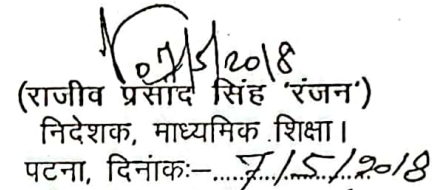 07/5/2018
(राजीव प्रसाद सिंह 'रंजन')
निदेशक, माध्यमिक शिक्षा।
पटना, दिनांकः–.....7/5/2018